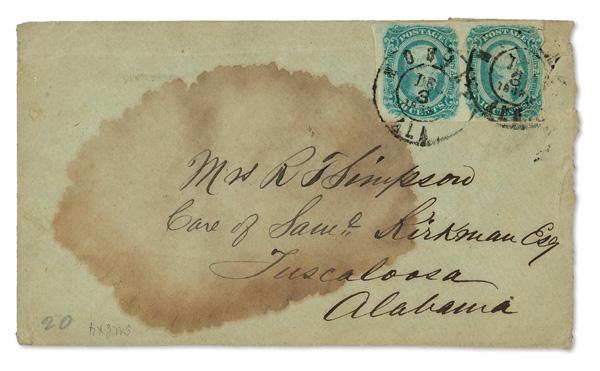 POSTAGE POSTAGE
MOBILE
ALA
CENTS CENTS
Mrs R F Simpson
Care of Saml. Kirkman Esq
Tuscaloosa
Alabama
20